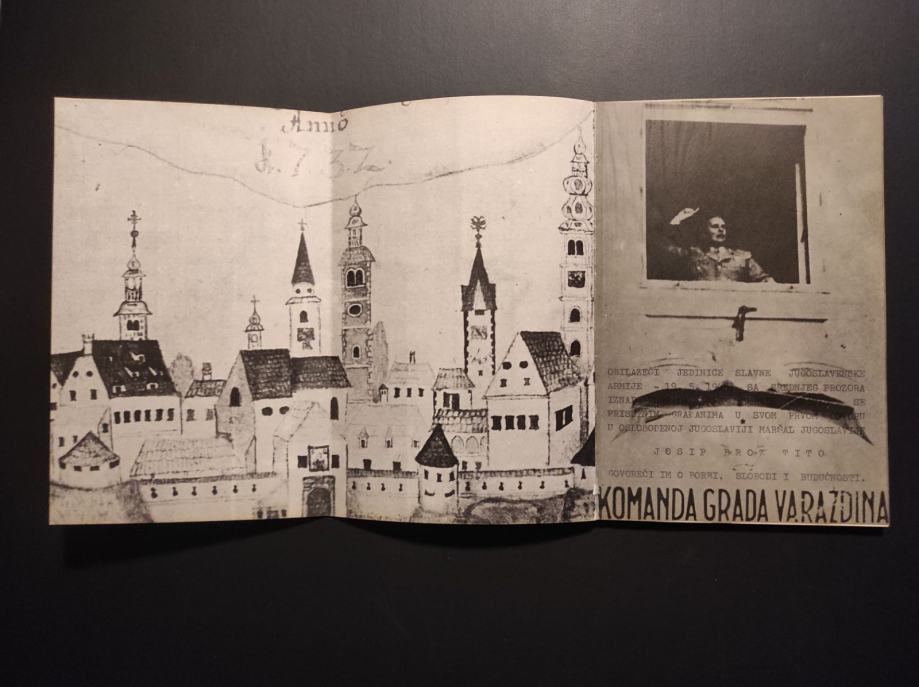 Anno
1737.
OBILAZEĆI JEDINICE SLAVNE JUGOSLAVENSKE
ARMIJE - 19. 5. SA SREDNJEG PROZORA
IZNAD SE
PRISUTNIM GRAĐANIMA U SVOM PRVOM
U OSLOBOĐENOJ JUGOSLAVIJI MARŠAL JUGOSLAVIJE
JOSIP BROZ TITO
GOVOREĆI IM O BORBI, SLOBODI I BUDUĆNOSTI.
KOMANDA GRADA VARAŽDINA